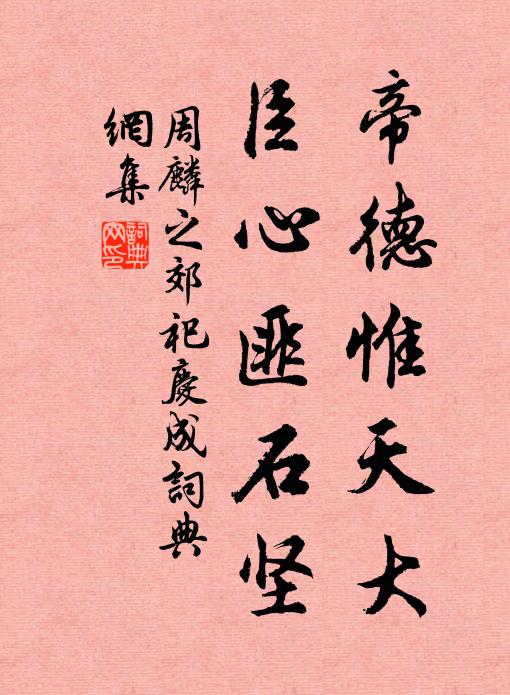 帝德惟天大
臣心匪石坚
周麟之郊祀慶成詞典
網集
詞典
网印